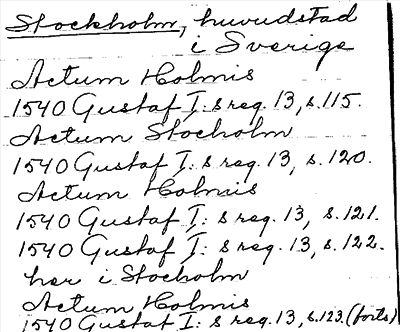 Stockholm, huvudstad
i Sverige
Actum Holmis
1540 Gustaf I:s reg. 13, s. 115.
Actum Stocholm
1540 Gustaf I:s reg. 13, s. 120.
Actum Holmis
1540 Gustaf I:s reg. 13, s. 121.
1540 Gustaf I:s reg. 13, s. 122.
her i Stocholm
Actum Holmis
1540 Gustaf I:s reg. 13, s. 123. (forts)